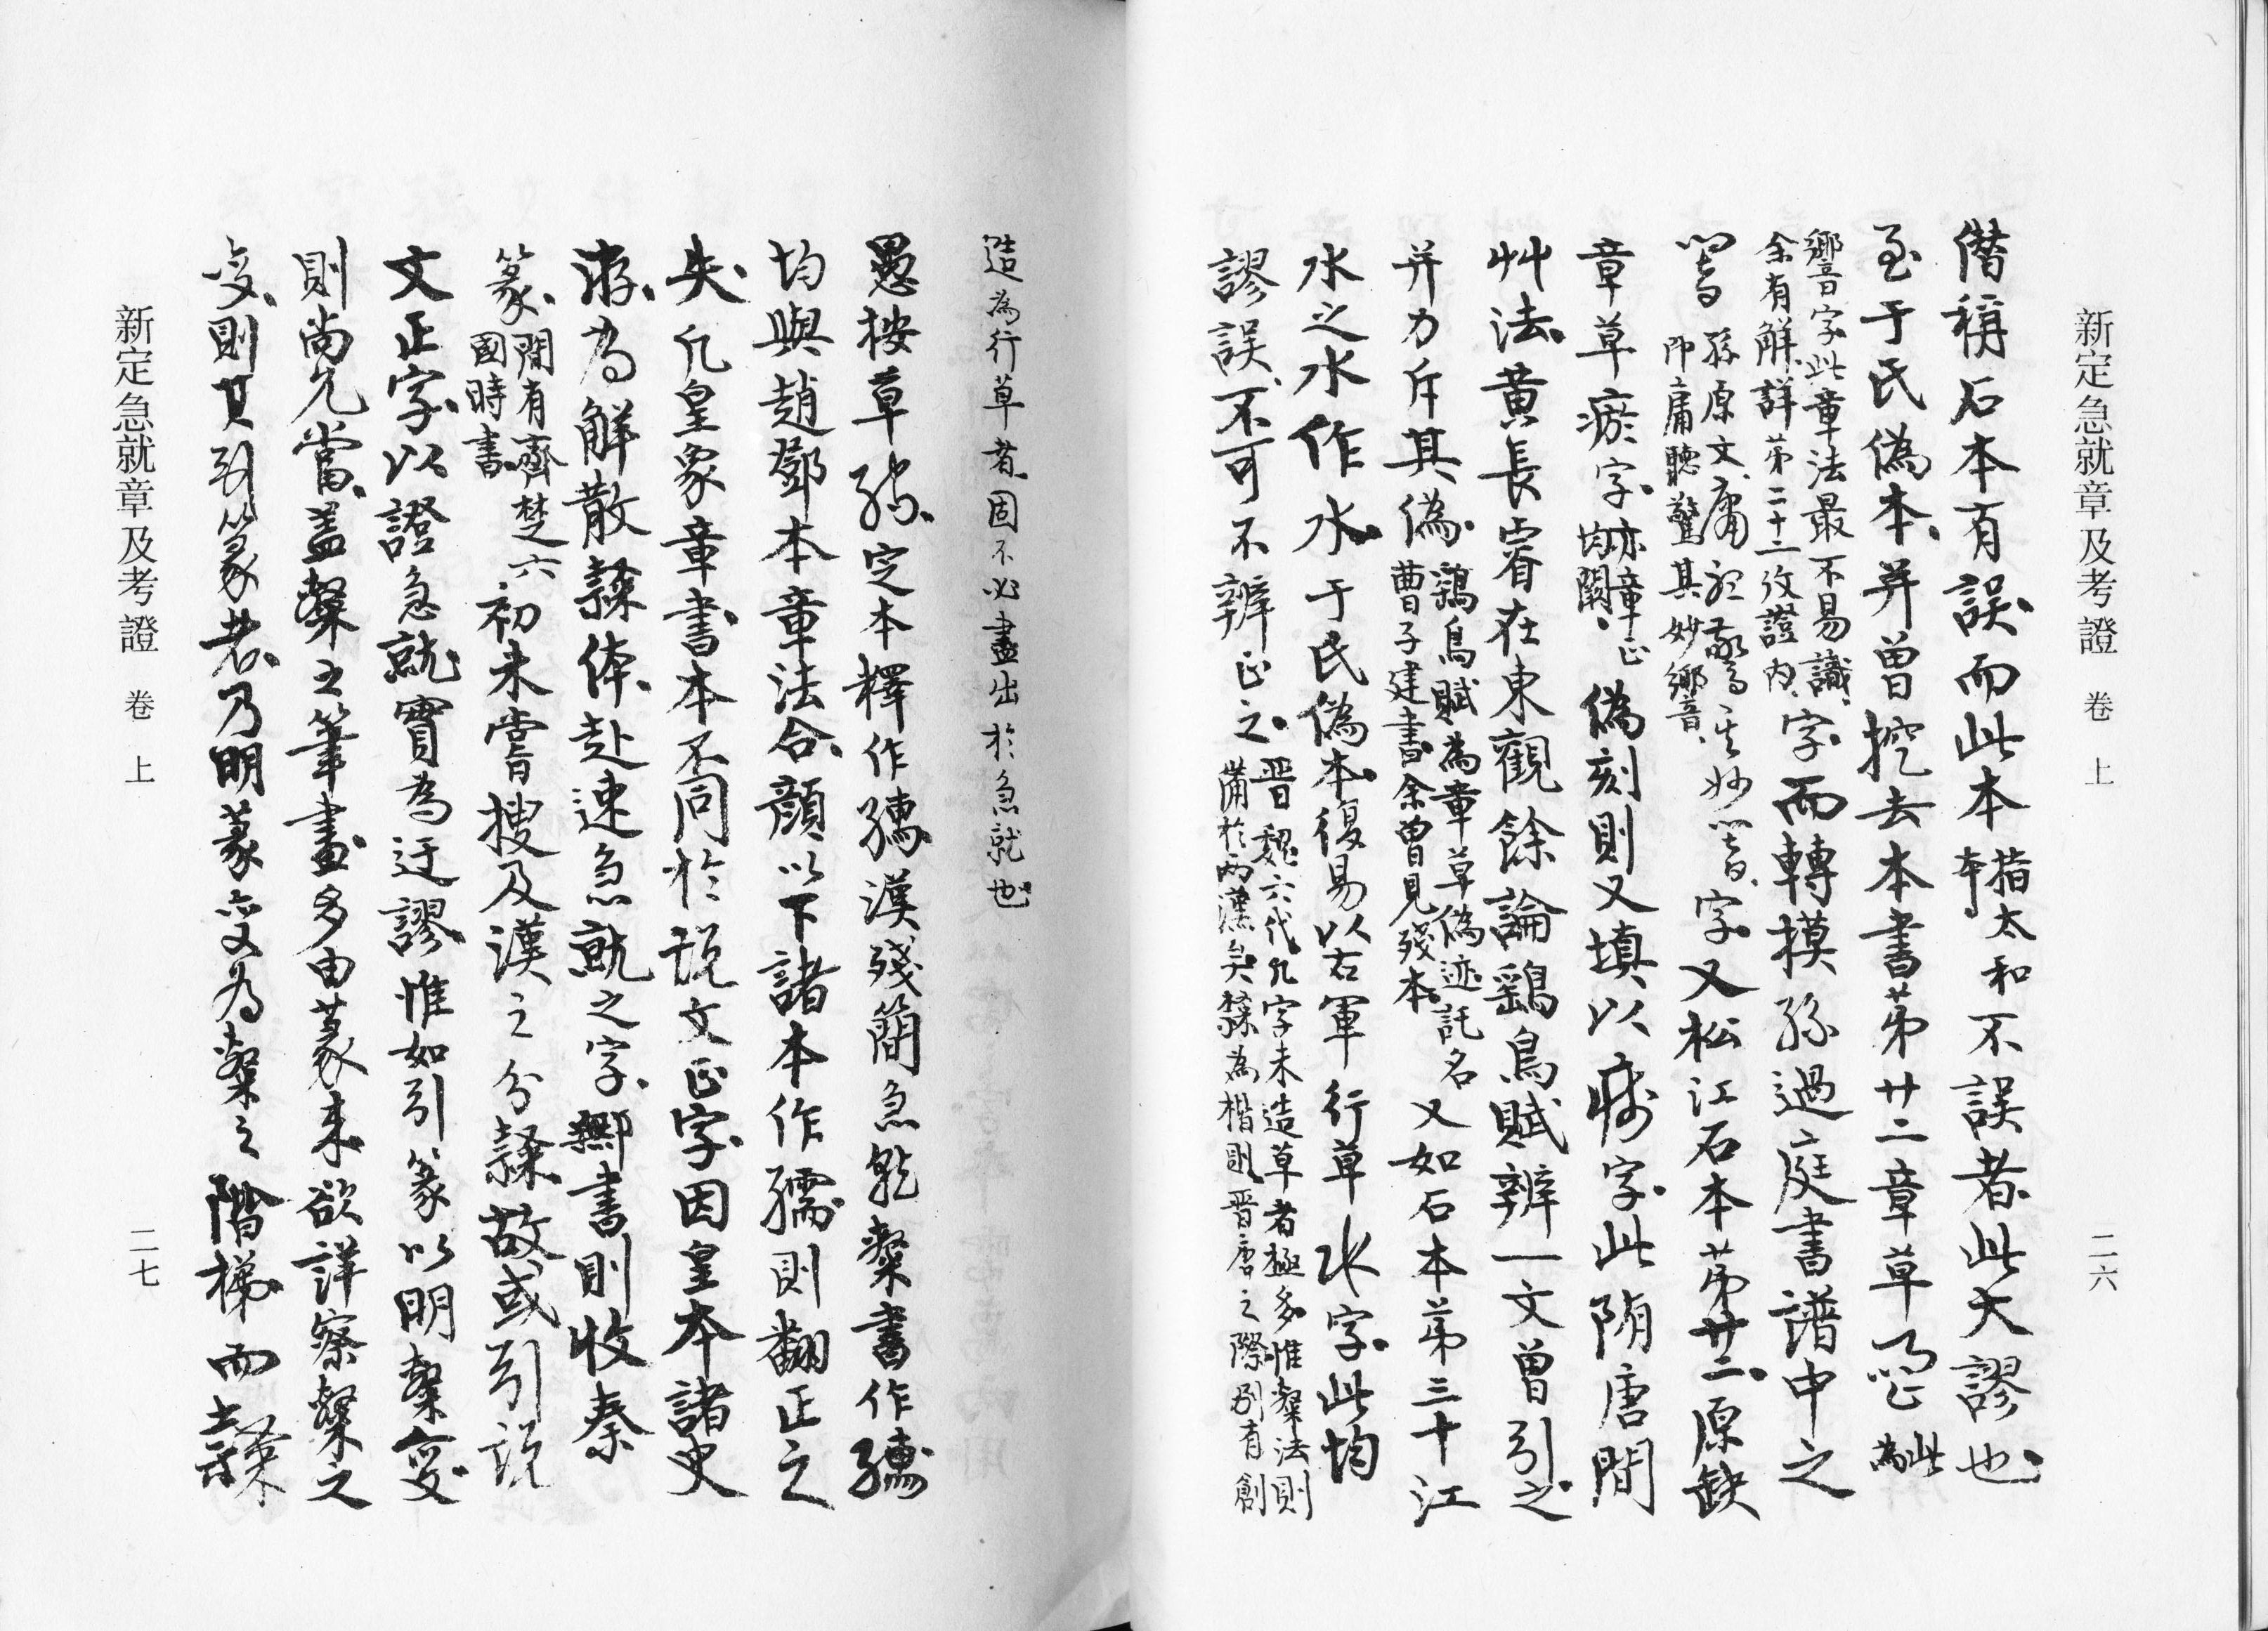 新定急就章及考證 卷上 二六
僭稱石本有誤而此本指太和本不誤者此大謬也
至于氏偽本并曾挖去本書苐廿二章草 此為
響字此章法最不易識余有解詳苐二十二攷證內字而轉摸孫過庭書譜中之
孫原文庸聽驚其妙響即庸聽驚其妙響音字又松江石本苐廿二原缺
章草瘀字亦章正均闕偽刻則又填以瘀字此隋唐間
艸法黃長睿在東觀餘論鷂鳥賦辨一文曾引之
并力斥其偽鷂鳥賦為章草偽迹託名曹子建書余曾見殘本又如石本苐三十江
水之水作水于氏偽本復易以右軍行草水字此均
謬誤不可不辨正之晋魏六代凡字未造草者極多惟槧法則蕳於兩漢矣隸為楷則晋唐之際别有創
造為行草者固不必盡出於急就也
愚按草 定本釋作 漢殘簡急就槧書作
均與趙鄧本章法合顏以下諸本作 則翻正之
失凡皇象章書本不同於説文正字因皇本諸史
游為解散隸体赴速急就之字鄉書則收秦
篆間有齊楚六國時書初未嘗搜及漢之分隸故或引説
文正字以證急就實為迂謬惟如引篆以明槧變
則尚允當盖槧之筆畫多由篆來欲詳察槧之
变則其引篆者乃明篆变為槧之階梯而隸
新定急就章及考證 卷上 二七